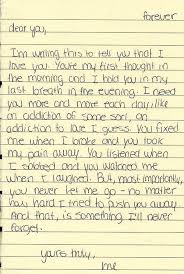 forever
dear you,
I'm writing this to tell you that I
love you. You're my first thought in
the morning and I hold you in my
last breath in the evening. I need
you more and more each day, like
an addiction of some sort, an
addiction to love I guess. You fixed
me when I broke and you took
my pain away. You listened when
I shouted and you watched me
when I laughed. But, most importantly,
you never let me go - no matter
how hard I tried to push you away.
And that, is something I'll never
forget.
yours truly,
me